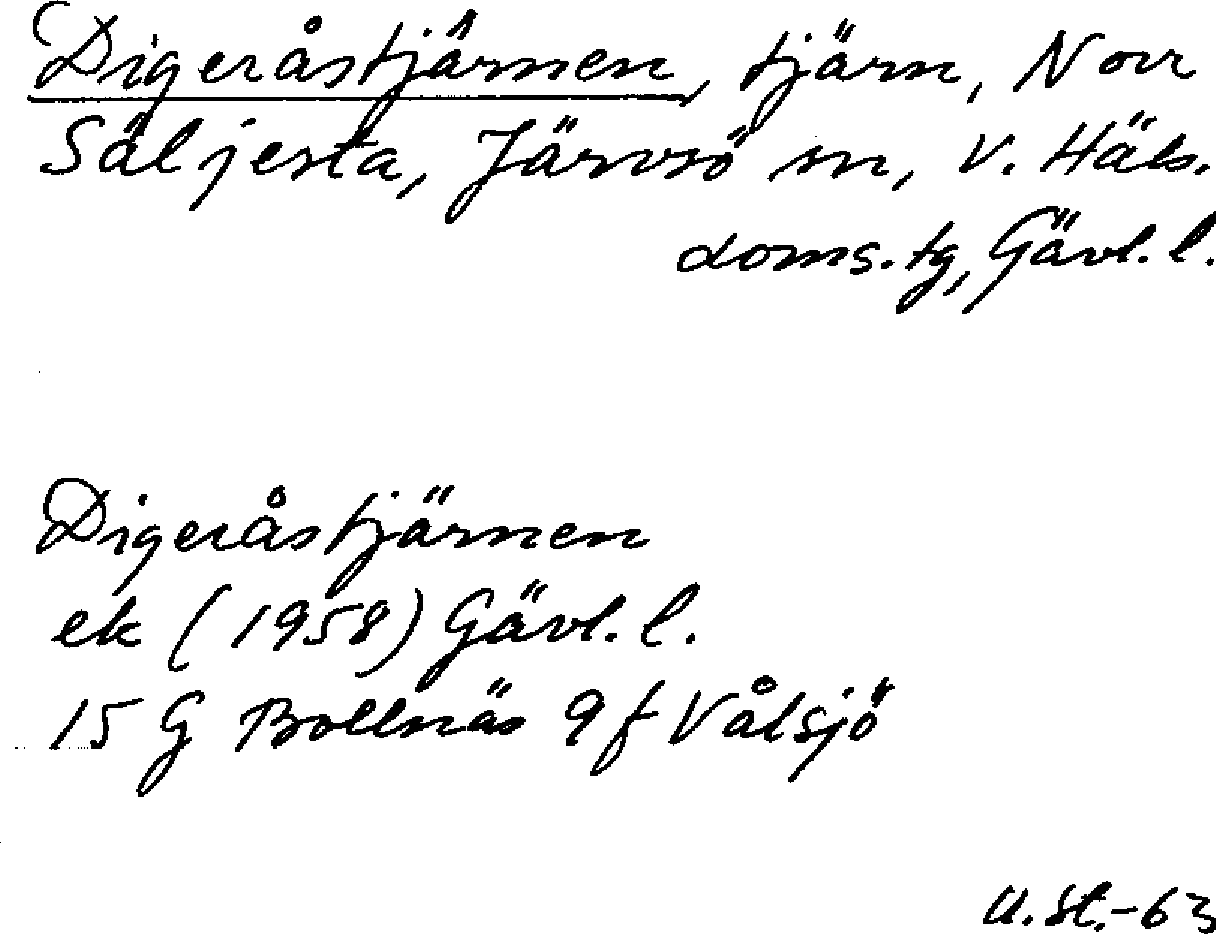 Digeråstjärnen, tjärn, Norr
Säljesta, Järvsö sn, V. Häls.
doms. tg, Gävl. l.
Digeråstjärnen
ek (1958) Gävl. l.
15 G Bollnäs 9 f Vålsjö
U. St. -63